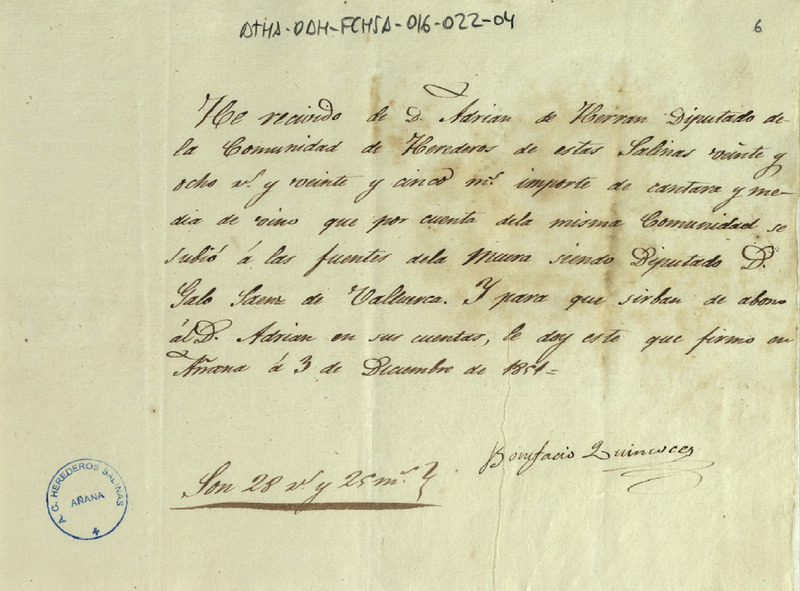 ATHA-DDH-FCHSA-016-022-04
6
He recivido de D. Adrian de Herran Diputado de
la Comunidad de Herederos de estas Salinas veinte y
ocho rs. y veinte y cinco ms. importe de cantara y me-
dia de vino que por cuenta dela misma Comunidad se
subió á las fuentes dela Muera siendo Diputado D.
Galo Saenz de Valluerca. Y para que sirban de abono
ál D. Adrian en sus cuentas, le doy este que firmo en
Añana á 3 de Diciembre de 1851=
Bonifacio Quincoces
Son 28 rs. y 25 ms.
A. C. HEREDEROS SALINAS
AÑANA